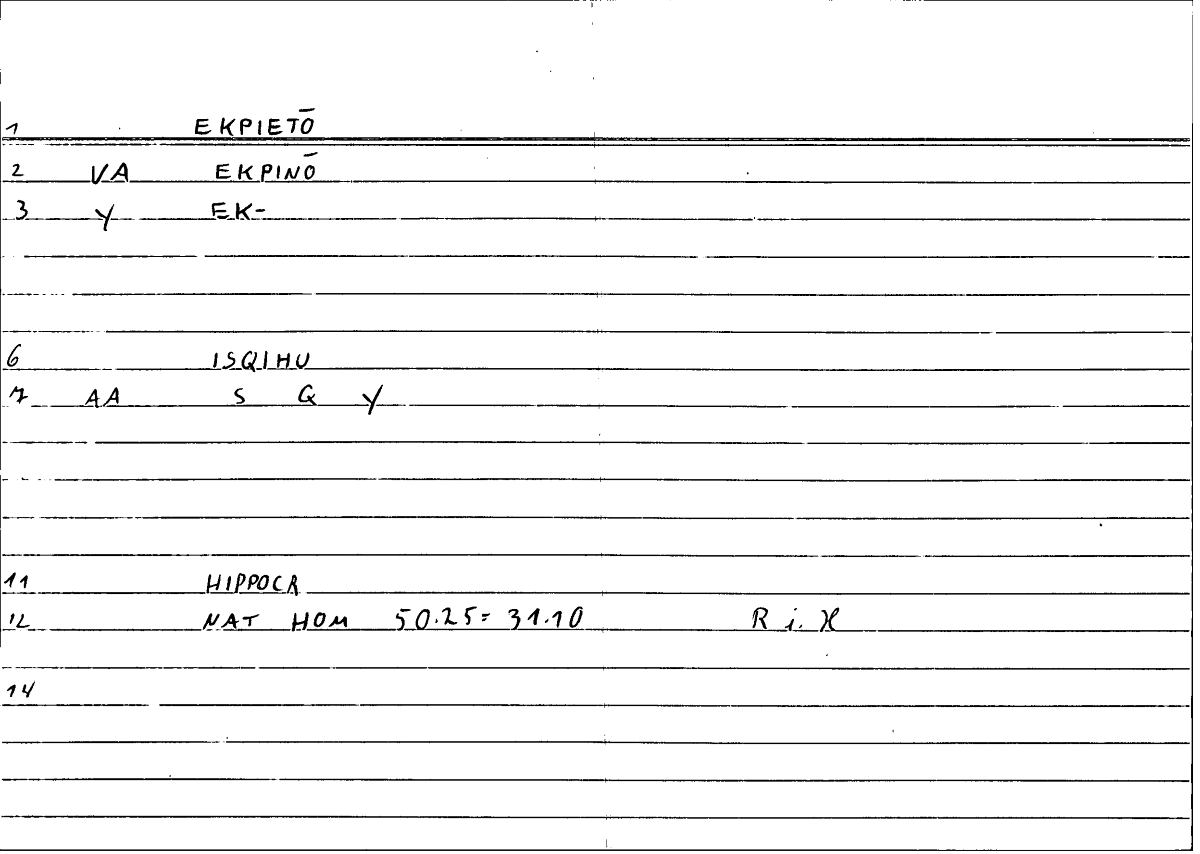 1 EKPIETŌ
2 VA EKPINŌ
3 Y EK-
6 ISQIHU
7 AA S Q Y
11 HIPPOCR
12 NAT HOM 50.25=31.10 R i.
14